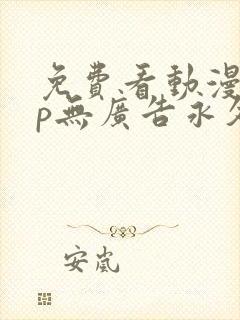 免費看動漫
p無廣告永久
安嵐